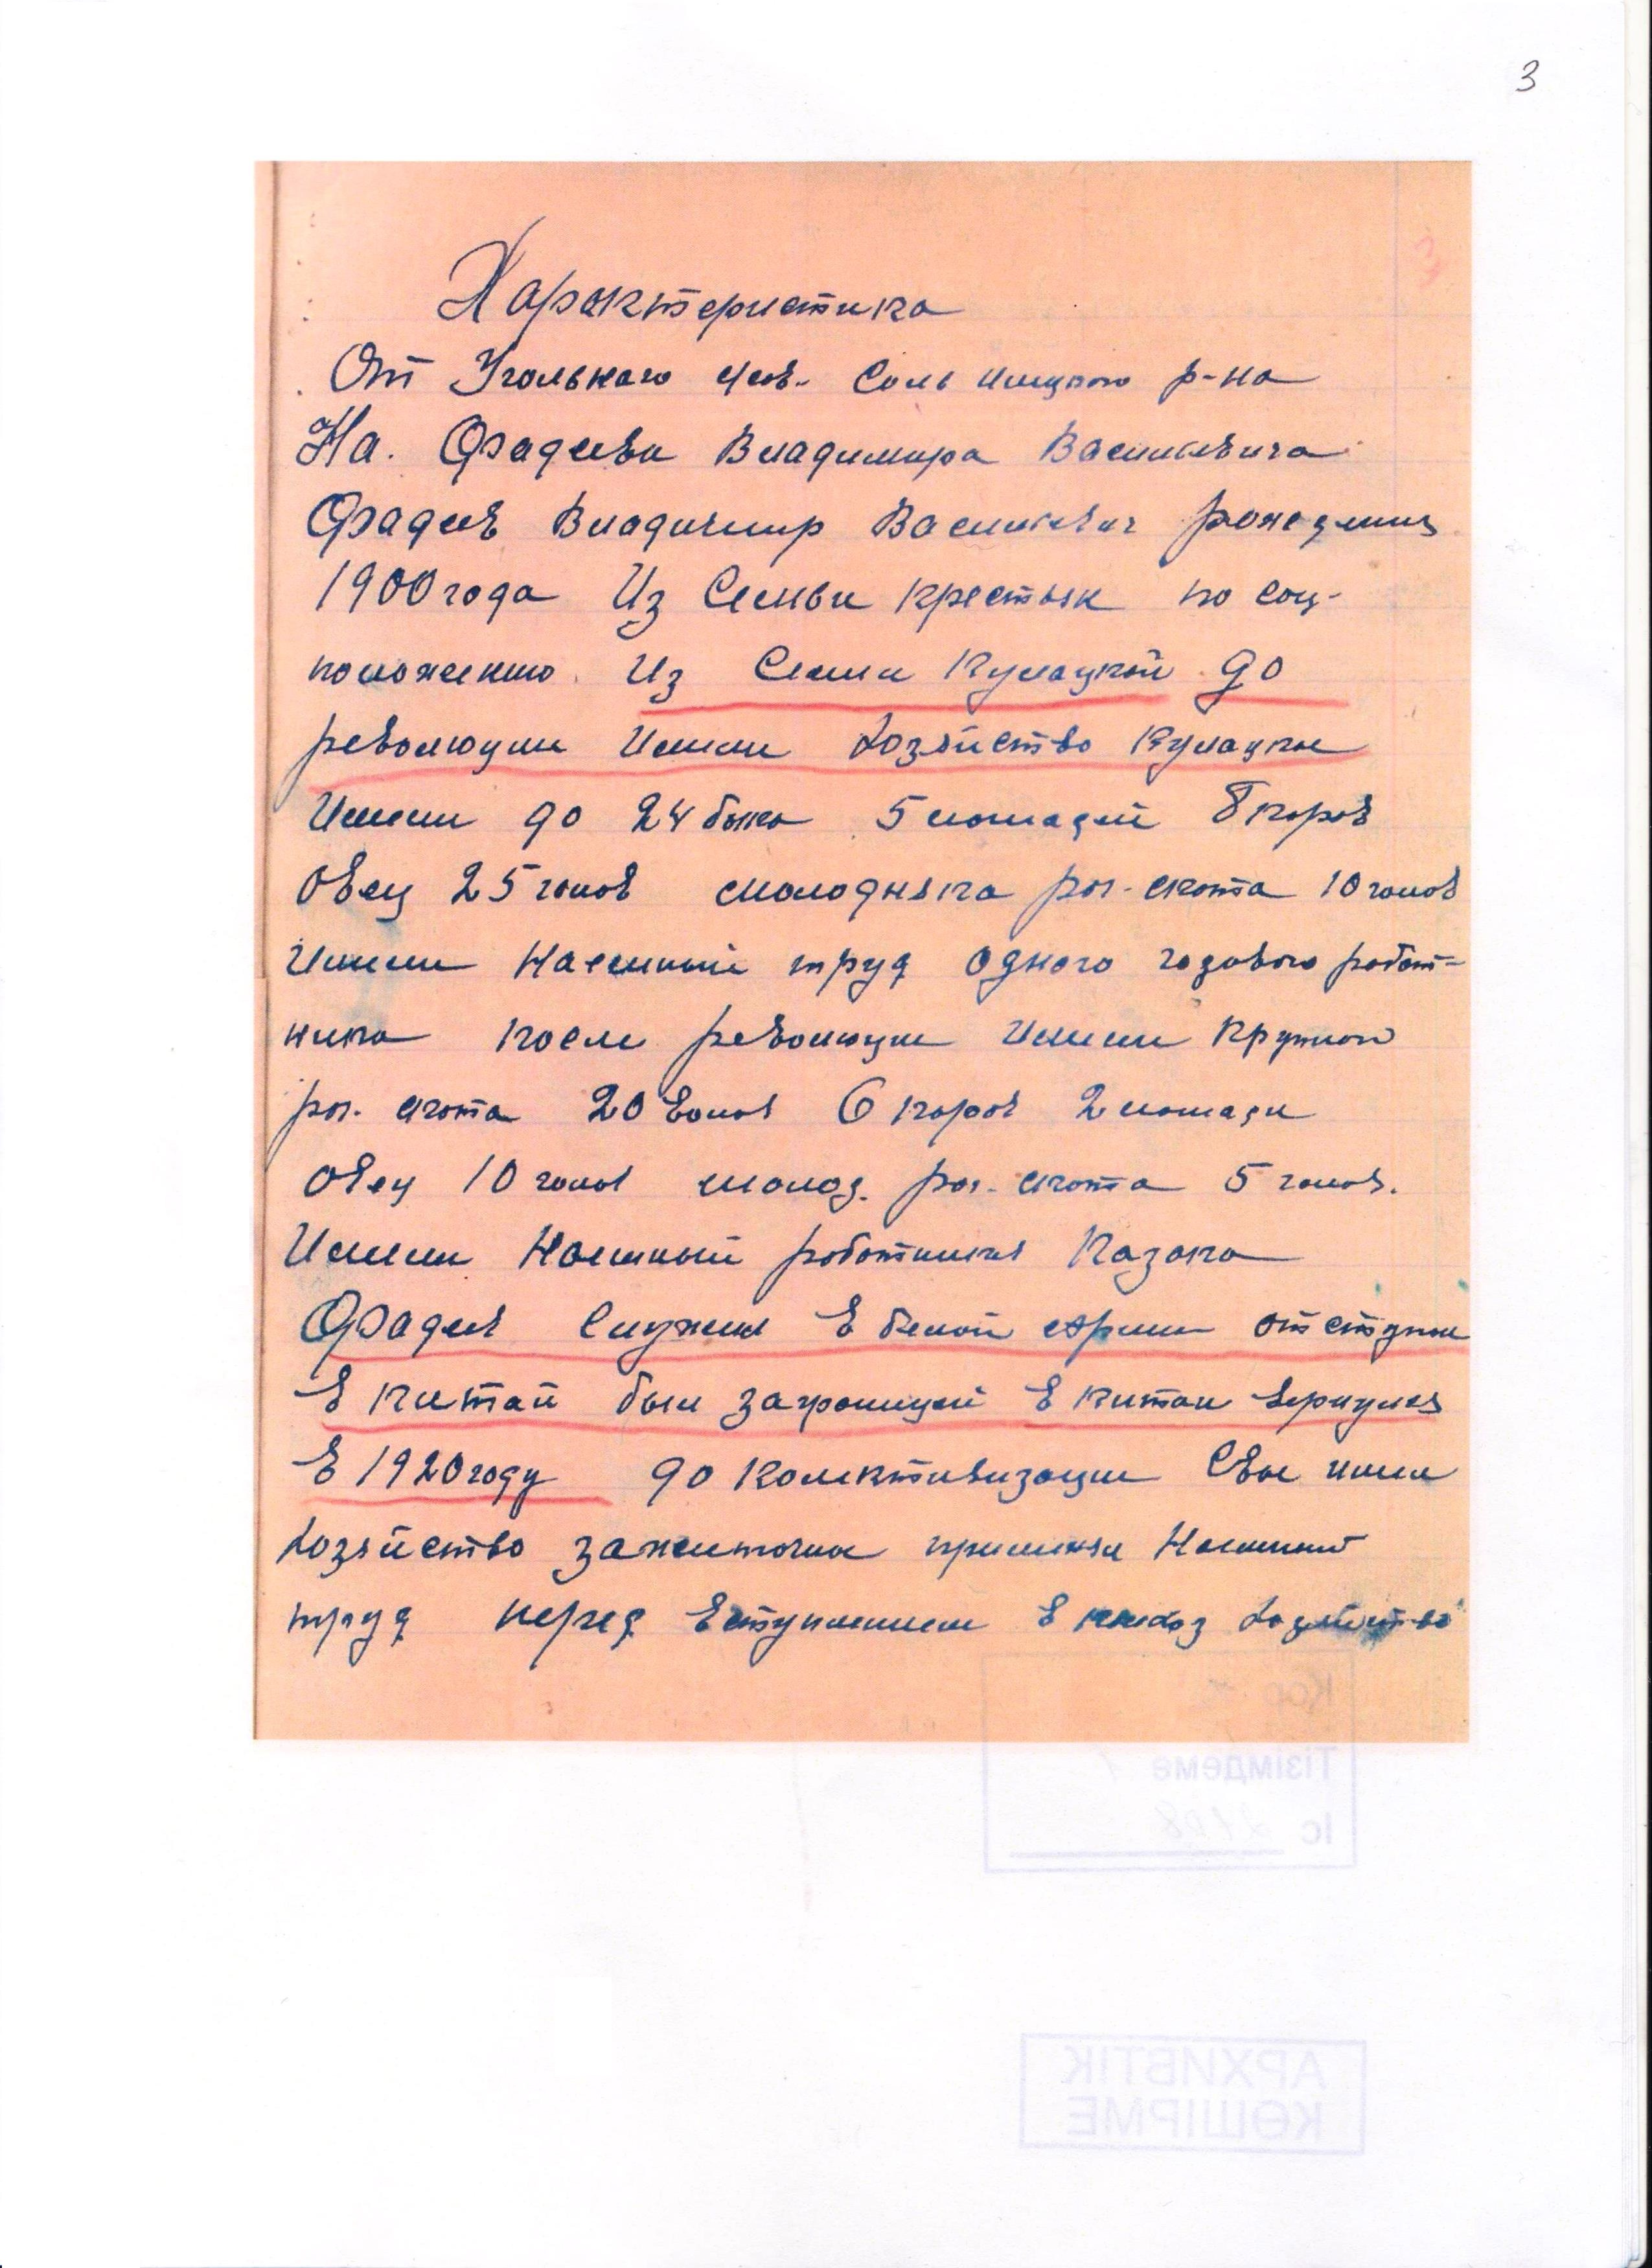 3
Характеристика
От Угольного с/сов. Соль Илецкого р-на
На. Фадеева Владимира Василевича
Фадеев Владимир Василевич рождения
1900 года Из Семьи крестьян по соц-
положению. Из Семьи Кулацкой до
революции Имели хозяйство Кулацкое
Имели до 24 быка 5 лошадей 8 коров
Овец 25 голов молодняка рог. скота 10 голов
Имели Наемный труд одного годового работ-
ника после революции Имели Крупной
рог. скота 20 голов 6 коров 2 лошади
Овец 10 голов молод. рог. скота 5 голов.
Имели Наемный работника Казака
Фадеев Служил в белой армии отступал
в Китай был заграницей в Китаи вернулся
в 1920 году до Колективизации Свое имел
хозяйство зажиточное применял Наемный
труд перед вступлением в колхоз хозяйство
Қор
Тізімдеме 1
Іс
АРХИВТІК
КӨШІРМЕ